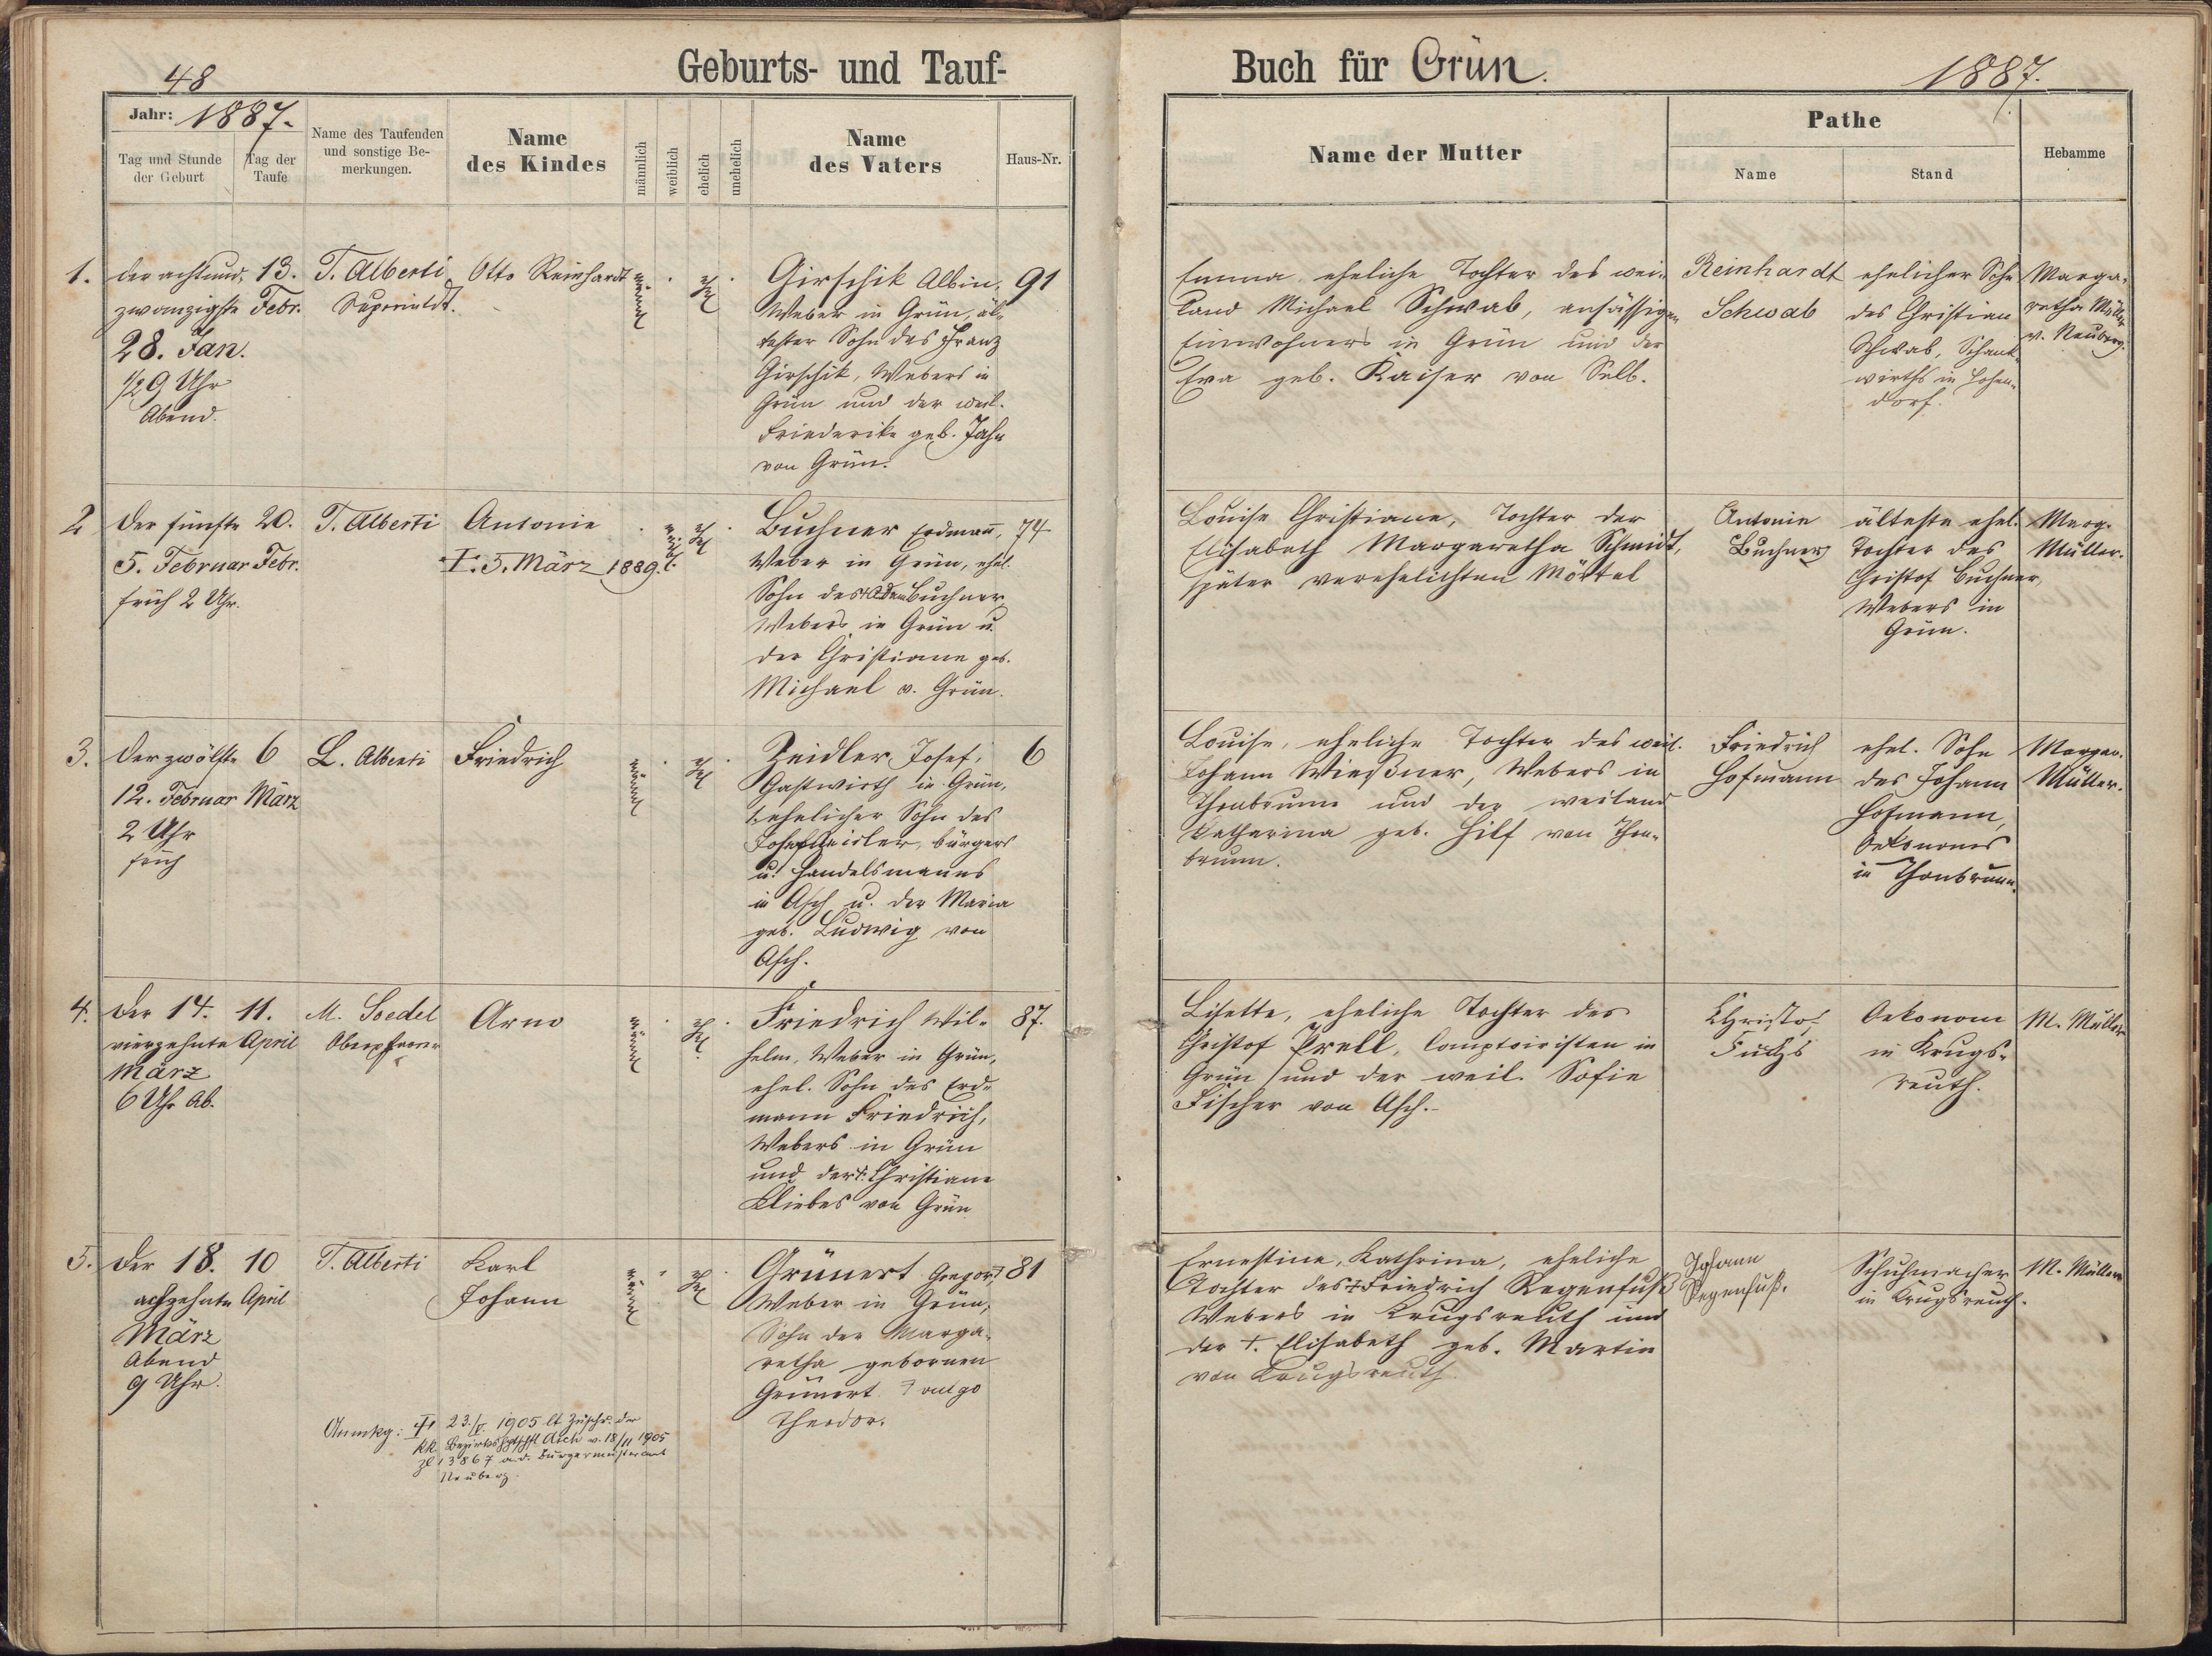 48
Geburts- und Tauf-
Buch für Grün.
1887.
Jahr: 1887.
Tag und Stunde der Geburt
Tag der Taufe
Name des Taufenden und sonstige Be-
merkungen.
Name
des Kindes
männlich
weiblich
ehelich
unehelich
Name
des Vaters
Haus-Nr.
Name der Mutter
Pathe
Name
Stand
Hebamme
1.
der achtund-
zwanzigste
28. Jan.
1/2 9 Uhr
Abend.
13.
Febr.
T. Alberti
Superintdt.
Otto Reinhardt
männl
ehel
Girschik Albin,
Weber in Grün, äl-
tester Sohn des Franz
Girschik, Webers in
Grün und der weil.
Friederike geb. Jahn
von Grün.
91
Emma, eheliche Tochter des wei-
land Michael Schwab, ansässigen
Einwohners in Grün und der
Eva geb. Kaiser von Selb.
Reinhardt
Schwab
ehelicher Sohn
des Christian
Schwab, Schank-
wirths in Hohen-
dorf.
Marga-
retha Müller
v. Neuberg.
2
Der fünfte
5. Februar
früh 2 Uhr.
20.
Febr.
T. Alberti
Antonie
†. 5. März 1889.
weibl.
ehel
Buchner Erdmann,
Weber in Grün, ehel.
Sohn des † Adam Buchner
Webers in Grün u.
der Christiane geb.
Michael v. Grün.
74
Louise Christiane, Tochter der
Elisabeth Margaretha Schmidt,
später verehelichten Mörtel
Antonie
Buchner
älteste ehel.
Tochter des
Christof Buchner,
Webers in
Grün.
Marg.
Müller.
3.
Der zwölfte
12. Februar
2 Uhr
früh
6
März
L. Alberti
Friedrich
männl
ehel
Zeidler Josef,
Gastwirth in Grün,
ehelicher Sohn des
Josef Zeidler, Bürgers
u. Handelsmanns
in Asch u. der Maria
geb. Ludwig von
Asch.
6
Louise, eheliche Tochter des weil.
Johann Wießner, Webers in
Thonbrunn und der weiland
Katharina geb. Hilf von Thon-
brunn.
Friedrich
Hofmann
ehel. Sohn
des Johann
Hofmann,
Oekonoms
in Thonbrunn.
Margar.
Müller.
4.
Der 14.
vierzehnte
März
6 Uhr Ab.
11.
April
M. Soedel
Oberpfarrer
Arno
männl
ehel
Friedrich Wil-
helm, Weber in Grün,
ehel. Sohn des Erd-
mann Friedrich,
Webers in Grün
und der †. Christiane
Kliebes von Grün
87.
Lisette, eheliche Tochter des
Christof Prell, Comptoiristen in
Grün und der weil. Sofie
Fischer von Asch.-
Christof
Fuchs
Oekonom
in Krugs-
reuth.
M. Müller
5.
Der 18.
achzehnte
März
Abend
9 Uhr.
10
April
T. Alberti
Karl
Johann
männl
ehel
Grünert Gregor
Weber in Grün,
Sohn der Marga-
retha gebornen
Grünert
Theodor.
81
Ernestine, Kathrina, eheliche
Tochter des † Friedrich Regenfuß
Webers in Krugsreuth und
der †. Elisabeth geb. Martin
von Krugsreuth.
Johann
Regenfuß.
Schuhmacher
in Krugsreuth.
M. Müller
Anmkg: 23./V. 1905 lt Zuschr. der
kk. Bezirkshptschft Asch v. 18/11 1905
Zl 13867 a. d. Bürgermeisteramt
Neuberg.